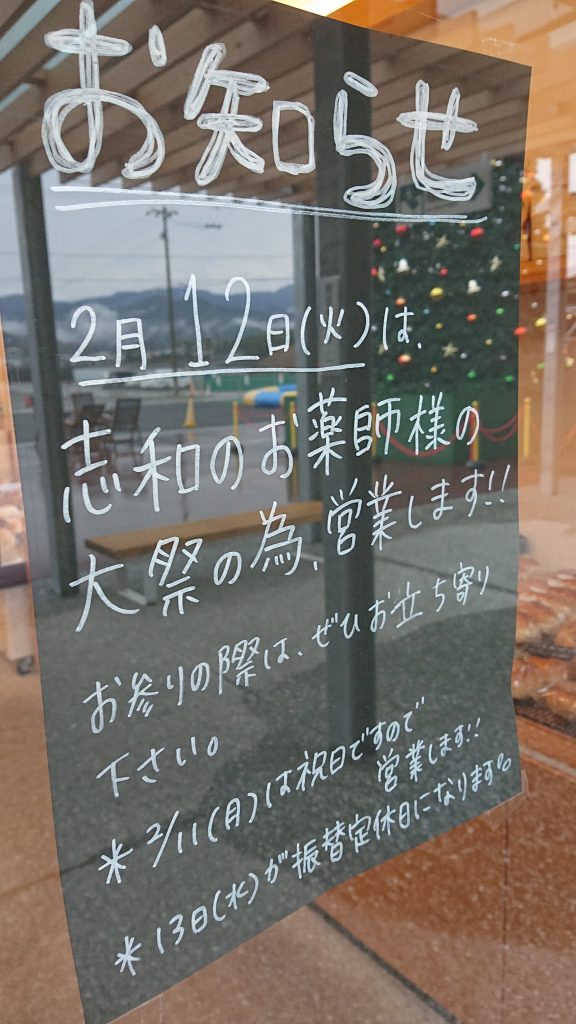 お知らせ
2月12日(火)は、
志和のお薬師様の
大祭の為、営業します!!
お参りの際は、ぜひお立ち寄り
下さい。
* 2/11(月)は祝日ですので
営業します!!
* 13日(水)が振替定休日になります。